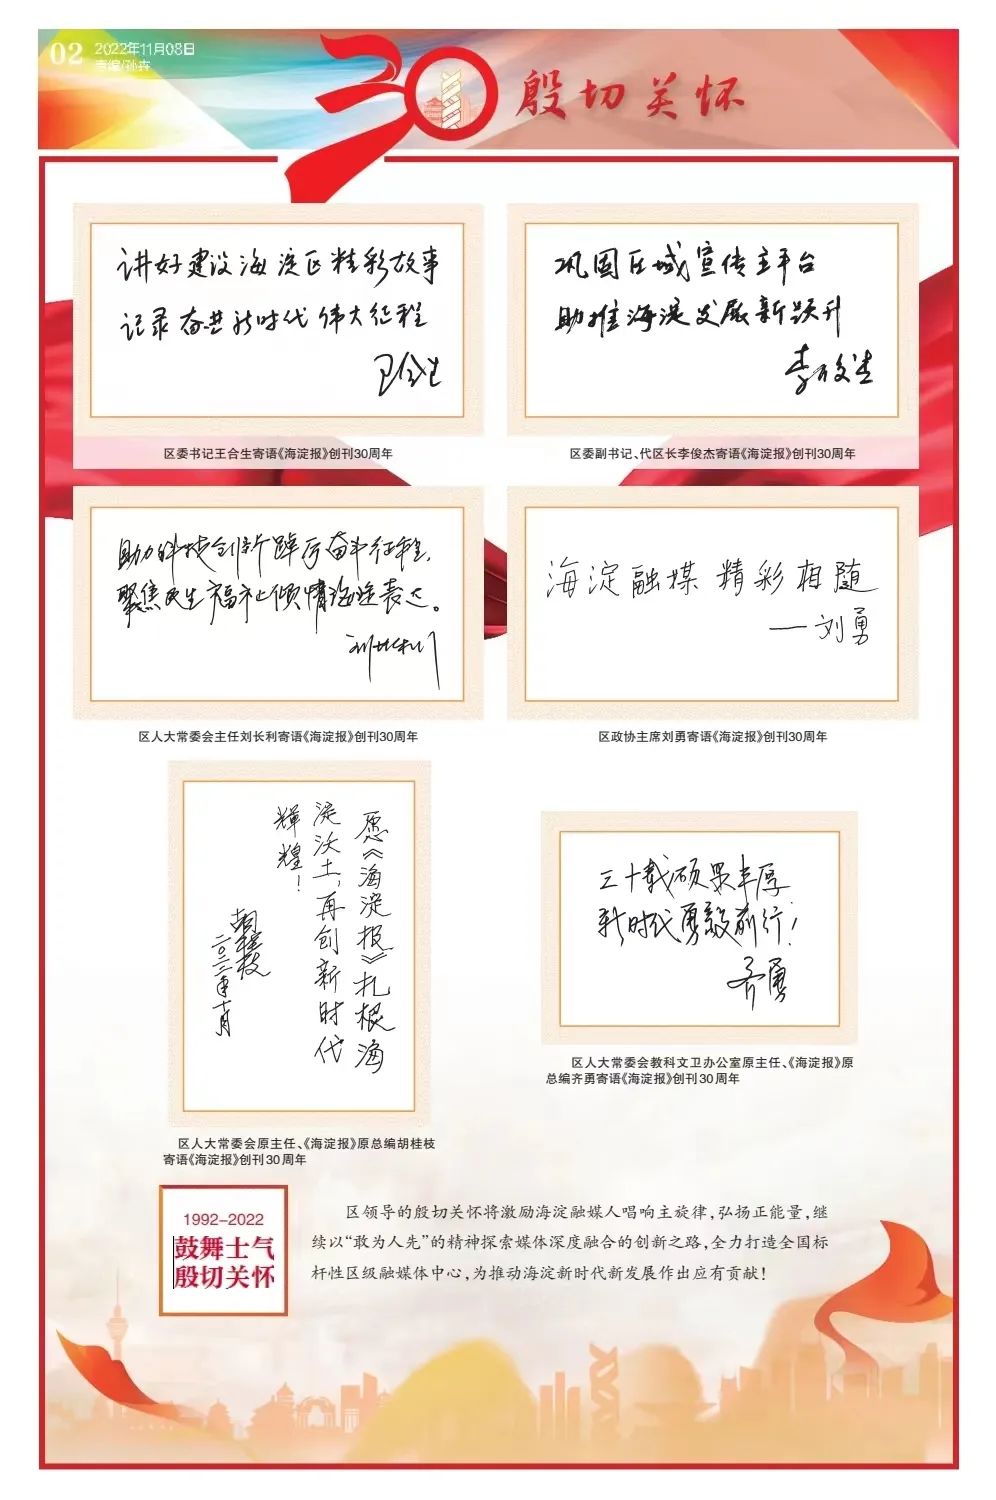 02
2022年11月08日
责编/孙犇
30
殷切关怀
讲好建设海淀区精彩故事
记录奋进新时代伟大征程
王合生
区委书记王合生寄语《海淀报》创刊30周年
巩固区域宣传主平台
助推海淀发展新跃升
李俊杰
区委副书记、代区长李俊杰寄语《海淀报》创刊30周年
助力科技创新踔厉奋斗征程，
聚焦民生福祉倾情海淀表达。
刘长利
区人大常委会主任刘长利寄语《海淀报》创刊30周年
海淀融媒 精彩相随
——刘勇
区政协主席刘勇寄语《海淀报》创刊30周年
愿《海淀报》扎根海
淀沃土，再创新时代
輝煌！
胡桂枝
二〇二二年十月
区人大常委会原主任、《海淀报》原总编胡桂枝
寄语《海淀报》创刊30周年
三十载硕果丰厚
新时代勇毅前行！
齐勇
区人大常委会教科文卫办公室原主任、《海淀报》原
总编齐勇寄语《海淀报》创刊30周年
1992-2022
鼓舞士气
殷切关怀
区领导的殷切关怀将激励海淀融媒人唱响主旋律，弘扬正能量，继
续以“敢为人先”的精神探索媒体深度融合的创新之路，全力打造全国标
杆性区级融媒体中心，为推动海淀新时代新发展作出应有贡献！